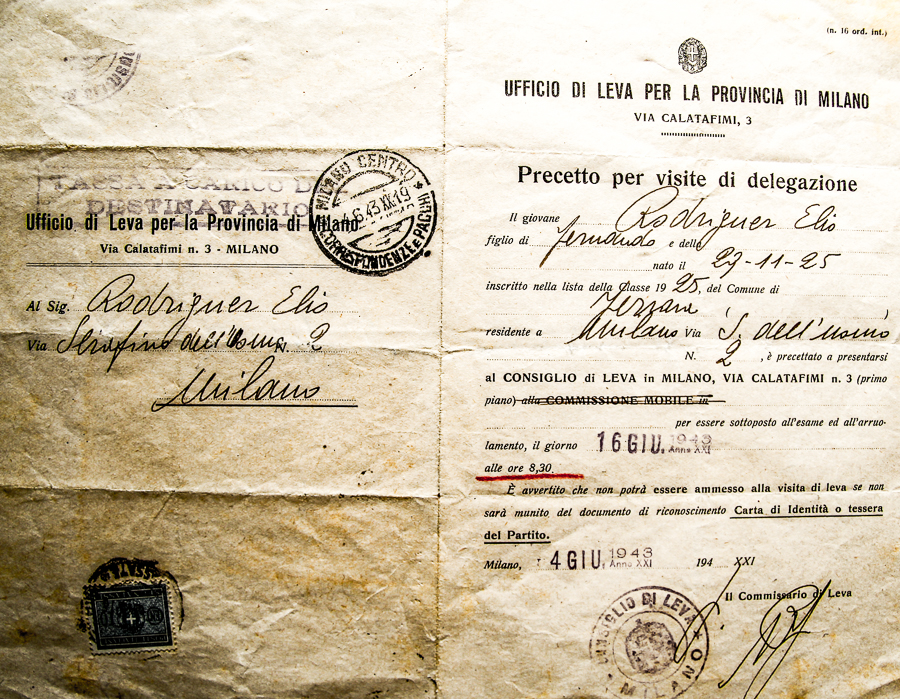 TASSA A CARICO DEL
DESTINATARIO
Ufficio di Leva per la Provincia di Milano
Via Calatafimi n. 3 - MILANO
MILANO CENTRO
CORRISPONDENZE E PACCHI
Al Sig. Rodriguez Elio
Via Serafino dell'Uomo N. 2
Milano
(n. 16 ord. int.)
UFFICIO DI LEVA PER LA PROVINCIA DI MILANO
VIA CALATAFIMI, 3
Precetto per visite di delegazione
Il giovane Rodriguez Elio
figlio di Fernando e della
nato il 27-11-25
inscritto nella lista della Classe 1925, del Comune di
residente a Milano Via S. dell'uomo
N. 2, è precettato a presentarsi
al CONSIGLIO di LEVA in MILANO, VIA CALATAFIMI n. 3 (primo
piano) alla COMMISSIONE MOBILE in
per essere sottoposto all'esame ed all'arruo-
lamento, il giorno 16 GIU. 1943 Anno XXI
alle ore 8,30.
È avvertito che non potrà essere ammesso alla visita di leva se non
sarà munito del documento di riconoscimento Carta di Identità o tessera
del Partito.
Milano, 4 GIU. 1943 Anno XXI 194 XXI
Il Commissario di Leva
CONSIGLIO DI LEVA
MILANO